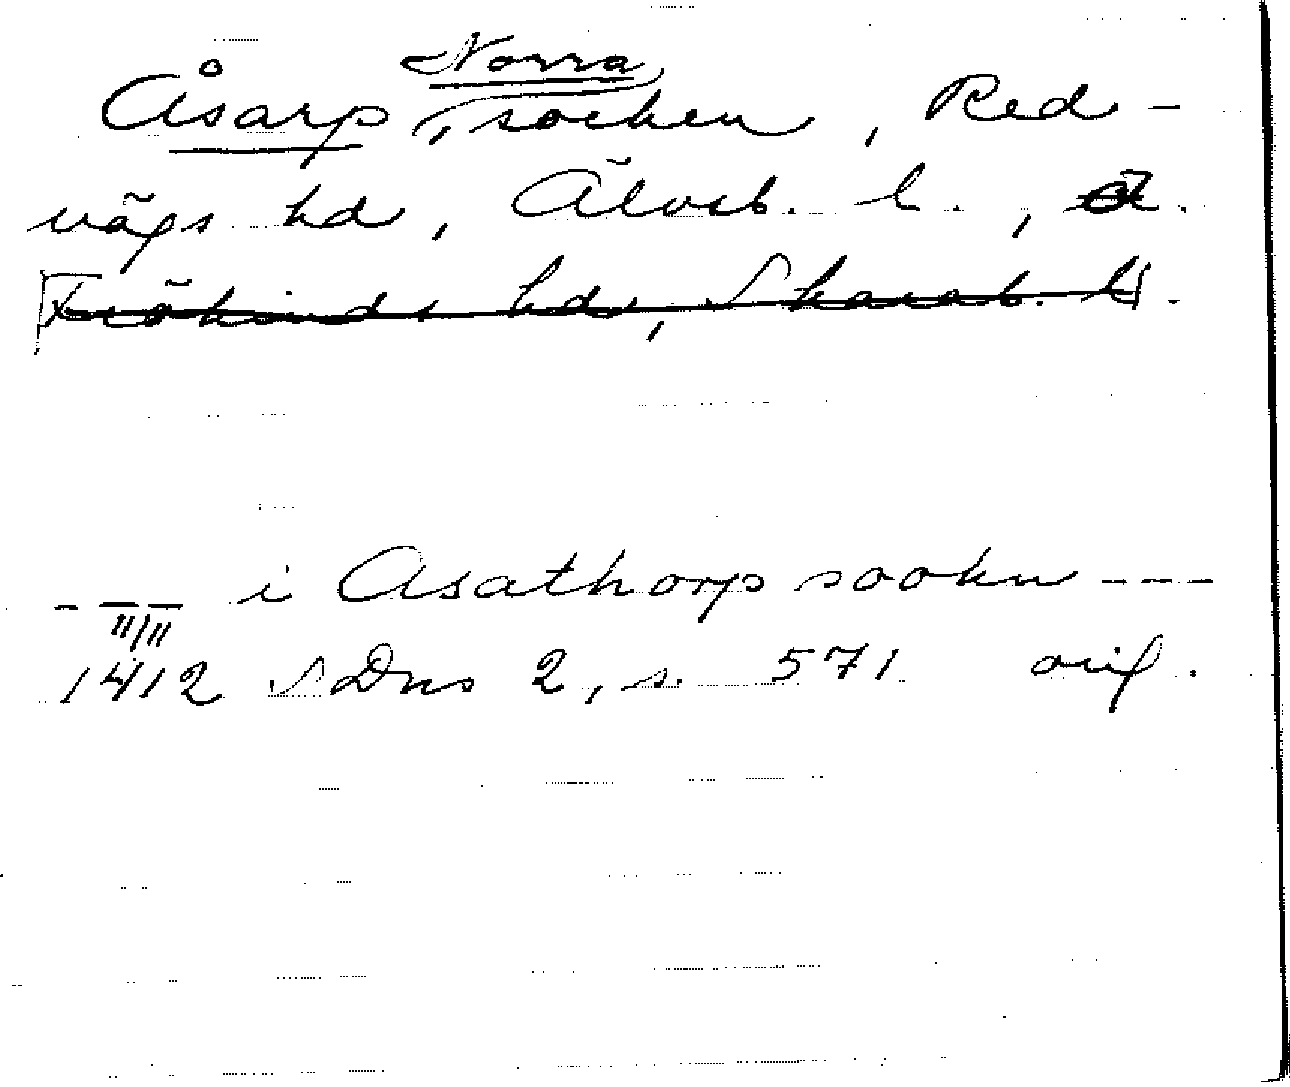 Norra
Åsarp, socken, Red-
vägs hd, Älvsb. l.,
Frökinds hd, Skarab. l.
- — — i Asathorp sookn ---
11/11
1412 SDns 2, s. 571 orig.